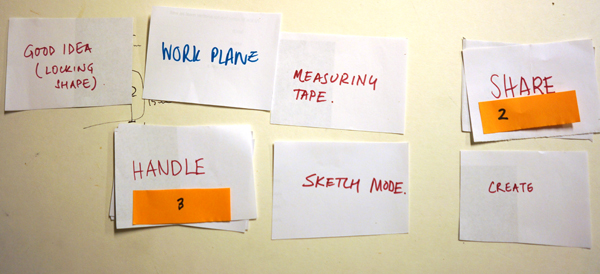 GOOD IDEA
(LOCKING
SHAPE)
WORK PLANE
MEASURING
TAPE.
SHARE
2
HANDLE
3
SKETCH MODE.
CREATE